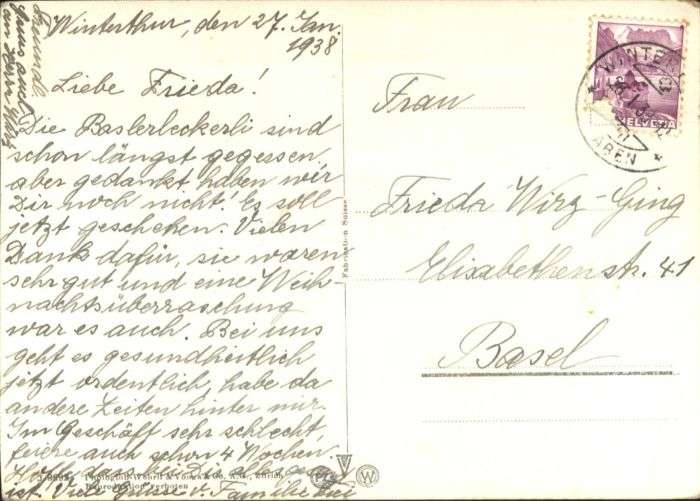 Winterthur, den 27. Jan.
1938
Liebe Frieda!
Die Baslerleckerli sind
schon längst gegessen
aber gedankt haben wir
Dir noch nicht! Es soll
jetzt geschehen. Vielen
Dank dafür, sie waren
sehr gut und eine Weih-
nachtsüberraschung
war es auch. Bei uns
geht es gesundheitlich
jetzt ordentlich, habe da
andere Zeiten hinter mir.
Im Geschäft sehr schlecht,
feiere auch schon 4 Wochen.
Hoffe, dass bei Dir alles gesund
ist. Viele Grüsse v. Familie
Freundl.
Gruss auch
an Herrn Wirz
Photoglob-Wehrli & Vouga & Co. A.G., Zürich
Reproduktion verboten
Fabrication Suisse
Frau
Frieda Wirz-Ging
Elisabethenstr. 41
Basel
HELVETIA
WINTER